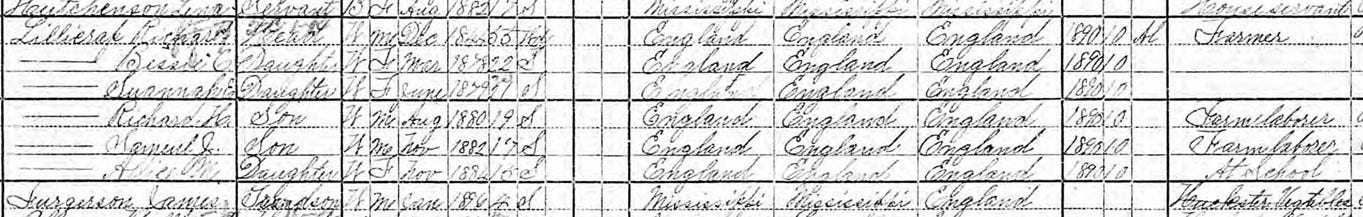 Hutchenson Servant B F Aug 1882 17 S Mississippi Mississippi Mississippi House servant
Lillicrap Richard Head W M Dec 1844 55 Wd England England England 1890 10 Al Farmer
—— Bessie C Daughter W F Mar 1878 22 S England England England 1890 10
—— Daughter W F June 1879 S England England England 1890 10
—— Richard Ha Son W M Aug 1880 19 S England England England 1890 10 Farm laborer
—— Samuel J. Son W M Nov 1882 17 S England England England 1890 10 Farm laborer
—— Alice M Daughter W F Nov 1884 15 S England England England 1890 10 At School
Furgerson James Grandson W M Jan S Mississippi Mississippi England Huckster Vegetables